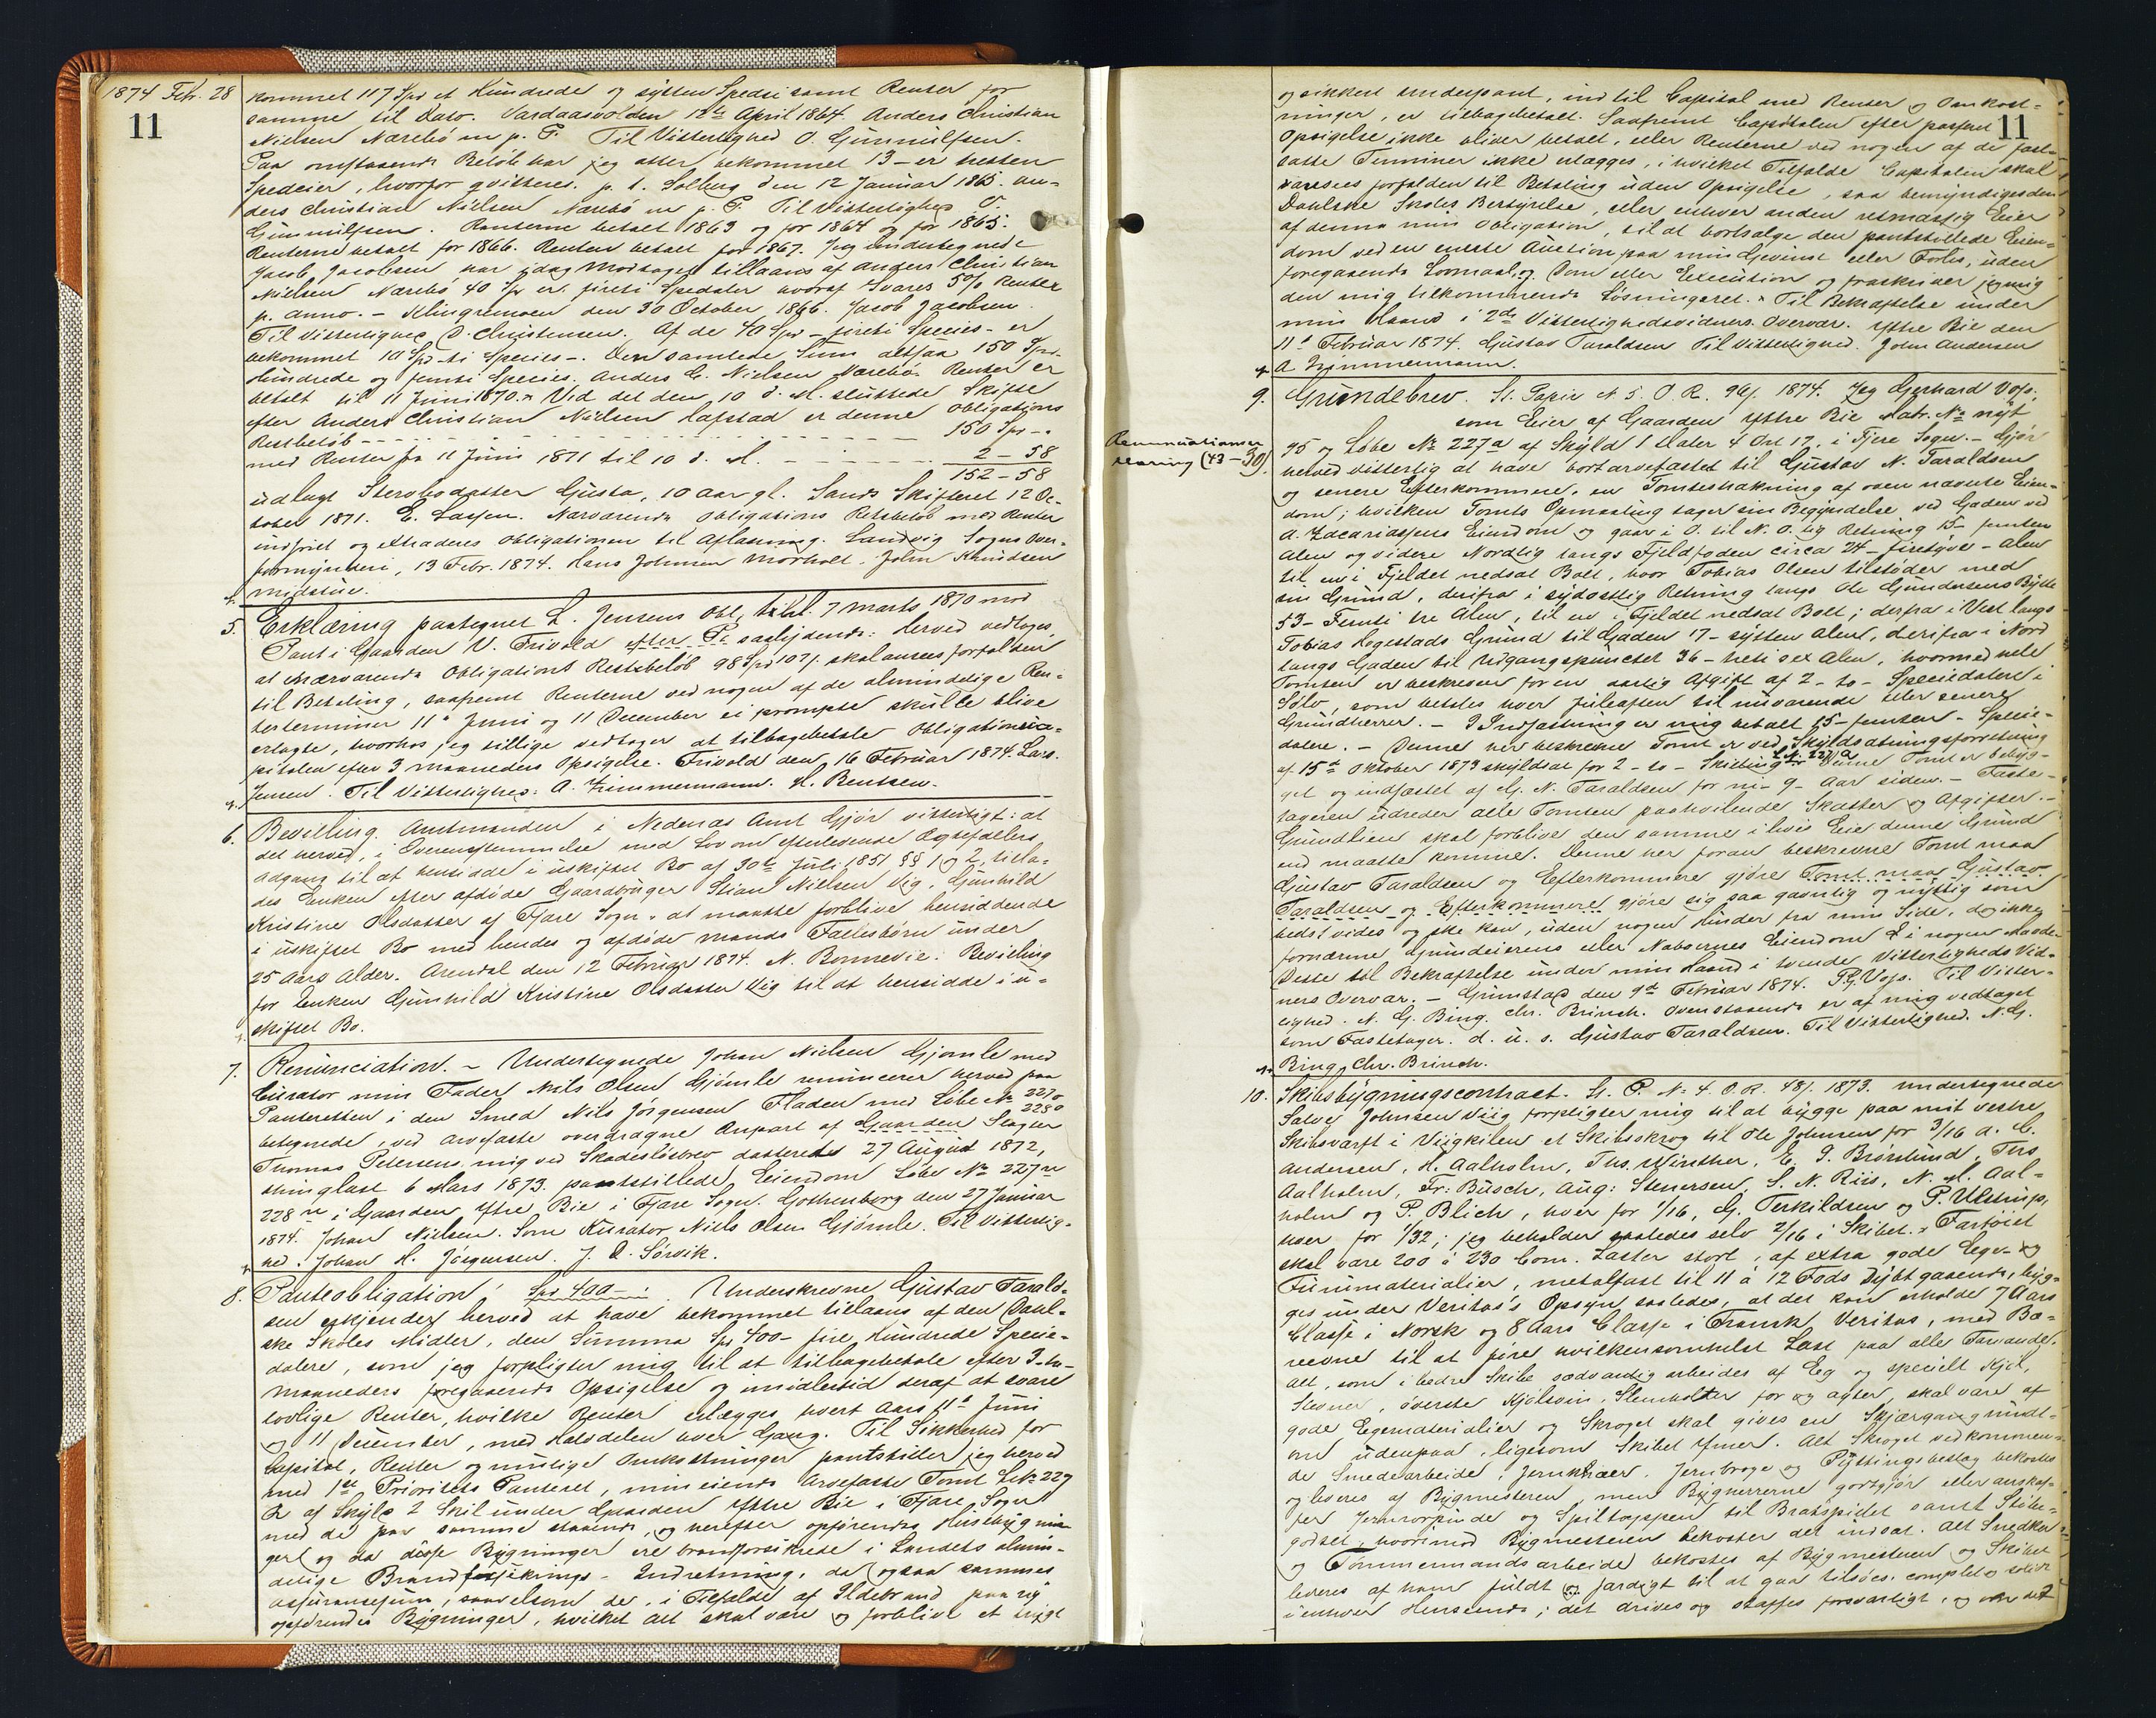 1874 Febr. 28
11
kommet 117 Spd et Hundrede og sytten Spesi samt Renter for
samme til Dato. Vardaasvolden 12te April 1864. Anders Christian
Nielsen Narebö m p. P. Til Vitterlighed O. Gunnulfsen.
Paa omstaaende Beløb har jeg atter bekommet 13 – er tretten
Spedeier, hvorfor qvitteres. p. t. Solberg den 12 Januar 1865. An-
ders Christian Nielsen Narebö m p. P. Til Vitterlighed O.
Gunnulfsen. Renterne betalt 1863 og for 1864 og for 1865.
Renterne betalt for 1866. Renten betalt for 1867. Jeg undertegnede
Jacob Jacobsen har idag modtaget tillaans af Anders Christian
Nielsen Narebö 40 Spd er firti Spedaler hvoraf Svares 5% Renter
p. anno. – Klingremoen den 30 October 1866. Jacob Jacobsen.
Til Vitterlighed O. Christensen. Af de 40 Spd – firti Species – er
bekommet 10 Spd – ti Species –. Den samlede Sum altsaa 150 Spd.
Hundrede og femti Species. Anders C. Nielsen Narebö. Renter er
betalt til 11 Juni 1870. " Ved det den 10 d. M. sluttede Skifte
efter Anders Christian Nielsen Hafstad er denne Obligations
Restbeløb - - - 150 Spd –.
med Renter fra 11 Juni 1871 til 10 d. M. - - 2 – 58
152 – 58
udlagt Sterbodatter Gusta, 10 Aar gl. Sands Skifteret 12 Oc-
tober 1871. E. Lassen. Nærværende Obligations Restbeløb med Renter
indfriet og extraderes Obligationen til Aflæsning. Landvig Sogns Over-
formynderi, 13 Febr. 1874. Hans Johnsen Morholt. John Knudsen
Midtbue.
5. Erklæring paategnet L. Jensens Obl. til 7 Marts 1870 mod
Pant i Gaarden V. Frivold efter P. saalydende: Herved vedtages,
at nærværende Obligations Restbeløb 98 Spd 107 s. skal ansees forfalden
til Betaling, saafremt Renterne ved nogen af de almindelige Ren-
testerminer 11te Juni og 11 December ei prompte skulle blive
erlagte, hvorhos jeg tillige vedtager at tilbagebetale Obligationsca-
pitalen efter 3 maaneders Opsigelse. Frivold den 16 Februar 1874. Lars
Jensen. Til Vitterlighed: A. Zimmermann. H. Bentsen.
6. Bevilling. Amtmanden i Nedenæs Amt Gjör vitterligt: at
det herved, i Overensstemmelse med Lov om efterlevende Ægtefællers
Adgang til at hensidde i uskiftet Bo af 30te Juli 1851 §§ 1 og 2, tilla-
des Enken efter afdøde Gaardbruger Stian Nielsen Vig, Gunhild
Kristine Olsdatter af Fjære Sogn, at maatte forblive hensiddende
i uskiftet Bo med hendes og afdøde Mands Fællesbørn under
25 Aars Alder. Arendal den 12 Februar 1874. N. Bonnevie. Bevilling
for Enken Gunhild Kristine Olsdatter Vig til at hensidde i u-
skiftet Bo.
7. Renunciation. – Undertegnede Johan Nielsen Gjömle med
Curator min Fader Niels Olsen Gjömle renuncerer herved paa
Panteretten i den Smed Nils Jörgensen Fladen med Löbe No 227o
228o
betegnede, ved Arvefæste overdragne Anpart af Gaarden Slagter
Thomas Petersens, mig ved Skadesløsbrev dateret 27 August 1872,
thinglæst 6 Mars 1873, pantstillede Eiendom Löbe No 227n
228n i Gaarden Yttre Bie i Fjære Sogn. Gothenborg den 27 Januar
1874. Johan Nielsen. Som Kurator Niels Olsen Gjömle. Til Vitterlig-
hed: Johan H. Jörgensen. J. A. Sörvik.
8. Panteobligation, Spd 400 –. Underskrevne Gustav Tarald-
sen erkjender herved at have bekommet tillaans af den Dahl-
ske Skoles Midler, den Summa Spd 400 – fire Hundrede Specie-
dalere, som jeg forpligter mig til at tilbagebetale efter 3 – tre –
maaneders foregaaende Opsigelse og imidlertid deraf at svare
lovlige Renter, hvilke Renter erlægges hvert Aars 11te Juni
og 11 December, med Halvdelen hver Gang. Til Sikkerhed for
Capital, Renter og mulige Omkostninger pantstiller jeg herved
med 1ste Prioritets Panteret, min eiende Arvefæste Tomt Lb No 227
Q af Skyld 2 Skil under Gaarden Yttre Bie i Fjære Sogn
med de paa samme staaende, og herefter opförendes Husebygnin-
ger og da disse Bygninger ere brandforsikrede i Landets almin-
delige Brandforsikrings-Indretning, da ogsaa sammes
assurancesum, saavelsom de, i Tilfælde af Ildebrand paa ny
opførendes Bygninger, hvilket Alt skal være og forblive et trygt
11
og sikkert Underpant, indtil Capital med Renter og Omkost-
ninger, er tilbagebetalt. Saafremt Capitalen efter passeret
Opsigelse ikke bliver betalt, eller Renterne ved nogen af de fast-
satte Terminer ikke erlægges, i hvilket Tilfælde Capitalen skal
ansees forfalden til Betaling uden Opsigelse, saa bemyndiges den
Dahlske Skoles Bestyrelse, eller enhver anden retmæssig Eier
af denne min Obligation, til at bortsælge den pantstillede Eien-
dom ved en eneste Auction paa min Gevinst eller Forlis, uden
foregaaende Lovmaal, og Dom eller Execution og fraskriver jeg mig
den mig tilkommende Løsningsret. " Til Bekræftelse under
min Haand i 2de Vitterlighedsvidners Overvær. Yttre Bie den
11te Februar 1874. Gustav Taraldsen Til Vitterlighed. John Andersen
A. Zimmermann.
9. Grundebrev. St. Papir No 5. O. R. 96 s. 1874. Jeg Gerhard Voss,
som Eier af Gaarden Yttre Bie Matr. No nyt
Renunciations-
(43 – 30)
95 og Löbe No 227a af Skyld 1 Daler 4 Ort 17, i Fjere Sogn. – Gjör
herved vitterlig at have bortarvefæstet til Gustav N. Taraldsen
og senere Efterkommere, en Tomtestrækning af oven nævnte Eien-
dom; hvilken Tomts Opmaaling tager sin Begyndelse ved Gaden ved
A. Zacariassens Eiendom og gaar i O. til N. O. lig Retning 15 – femten
Alen og videre Nordlig langs Fjeldfoden circa 24 – firetyve – Alen
til en i Fjeldet nedsat Bolt, hvor Tobias Olsen tilstøder med
sin Grund, derifra i sydostlig Retning langs Ole Gundersens Bytte
53 – Femti tre Alen, til en i Fjeldet nedsat Bolt; derfra i Vest langs
Tobias Hogestads Grund til Gaden 17 – sytten Alen, derifra i Nord
langs Gaden til Udgangspunctet 36 – treti sex Alen, hvormed hele
Tomten er beskreven for en aarlig Afgift af 2 – to – Speciedaler i
Sölv, som betales hver Juleaften til nuværende eller senere
Grundherrer. – I Indfæstning er mig betalt 15 – femten – Specie-
dalere. – Denne her beskrevne Tomt er ved Skyldsætningsforretning
af 15de Oktober 1873 skyldsat for 2 – to – Skilling Lb No 227 Q. Denne Tomt er bebyg-
get og indfæstet af G. N. Taraldsen for ni – 9 – Aar siden. – Fæste-
tageren udreder alle Tomten paahvilende Skatter og Afgifter. –
Grundleien skal forblive den samme i hvis Eie denne Grund
end maatte komme. Denne her foran beskrevne Tomt maa
Gustav Taraldsen og Efterkommere gjöre Tomt maa Gustav
Taraldsen og Efterkommere gjöre sig saa gavnlig og nyttig som
bedst vides og ske kan, uden nogen Hinder fra min Side, dog ikke
fornærme Grundeierens eller Naboernes Eiendom I i nogen Maade.
Dette til Bekræftelse under min Haand i tvende Vitterligheds Vid-
ners Overvær. – Grimstad den 9de Februar 1874. P. G. Voss. Til Vitter-
lighed. N. G. Bing. Chr. Brinch. Ovenstaaende er af mig vedtaget
som Fæstetager. d. u. s. Gustav Taraldsen. Til Vitterlighed. N. G.
Bing, Chr. Brinch.
10. Skibsbygningscontract. St. P. No 4. O. R. 48 s. 1873. Undertegnede
Salve Johnsen Viig forpligter mig til at bygge paa mit vestre
Skibsværft i Viigkilen et Skibsskrog til Ole Johnsen for 3/16 A. C.
Andersen, H. Aalholm, Ths. Winther, E. S. Brorslund, Ths
Aalholm, Fr: Busch, Aug: Stenersen, S. N. Riis, N. M. Aal-
holm og P. Blich, hver for 1/16, G. Terkildsen og P. Ulstrup,
hver for 1/32; jeg beholder saaledes selv 2/16 i Skibet. " Fartöiet
skal være 200 á 230 Com. Læster stort, af extra gode Eege- og
Furumaterialier, metalfast til 11 á 12 Fods Dybtgaaende, byg-
ges under Veritas's Opsyn saaledes, at det kan erholde 7 Aars
Classe i Norsk og 8 Aars Classe i Fransk Veritas, med Bæ-
reevne til at före hvilkensomhelst Last paa alle Farvande.
Alt, som i bedre Skibe sædvanlig arbeides af Eeg og specielt Kjöl,
Stevner, överste Kjölsvin, Slemholter for og agter, skal være af
gode Egematerialier og Skroget skal gives en Skjærgang rundt-
om udenpaa, ligesom Skibet Ymer. Alt Skroget vedkommen-
de Smedearbeide, Jernknæer, Jernbroge og Pyttingsbeslag bekostes
og leveres af Bygmesteren, men Bygherrerne godtgjör eller anskaf-
fer Jernrorpinde og Spiltappen til Bradspidet samt Støbe-
godset, hvorimod Bygmesteren bekoster det indsat. Alt Snedker
og Tömmermandsarbeide bekostes af Bygmesteren og Skibet
leveres af ham fuldt og færdigt til at gaa tilsöes, complet & solid
i enhver Henseende; det drives og stoppes forsvarligt, og om det